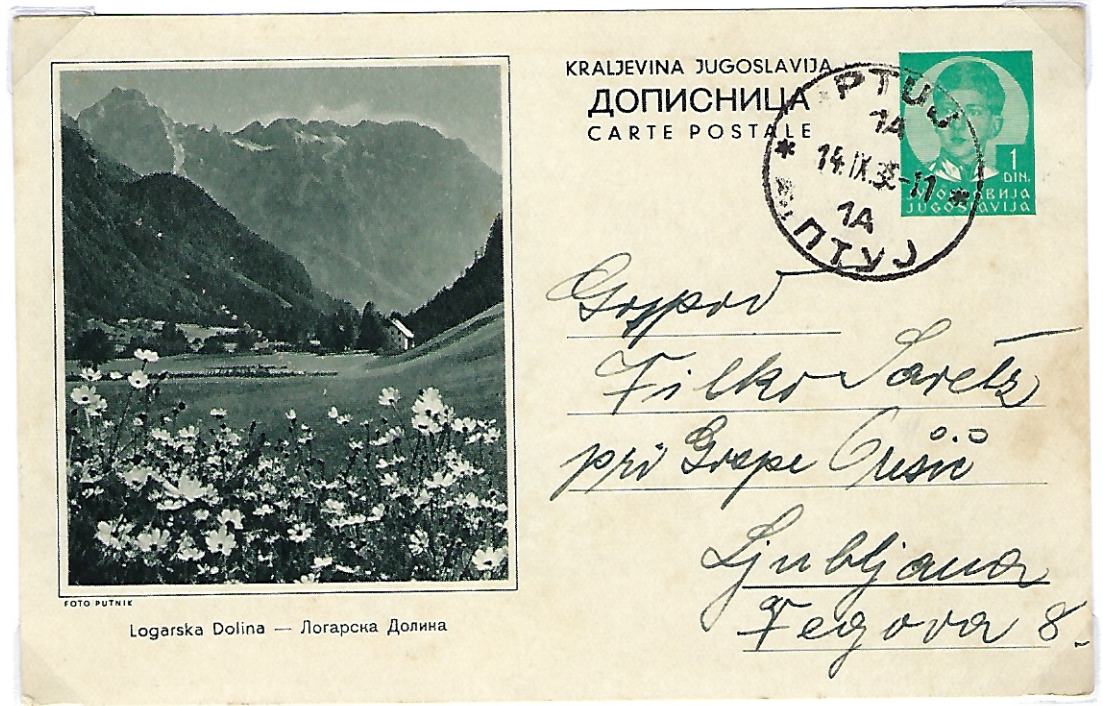 KRALJEVINA JUGOSLAVIJA
ДОПИСНИЦА
CARTE POSTALE
PTUJ
1A
14.IX.3 -11
1A
ПТУЈ
1
DIN.
ЈУГОСЛАВИЈА
JUGOSLAVIJA
Filko
pri
Ljubljana
Vegova 8.
FOTO PUTNIK
Logarska Dolina — Логарска Долина